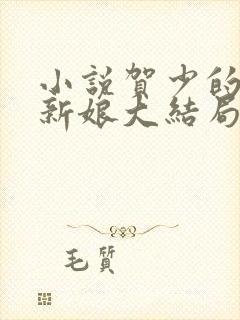 小說賀少的
新娘大結局
毛質